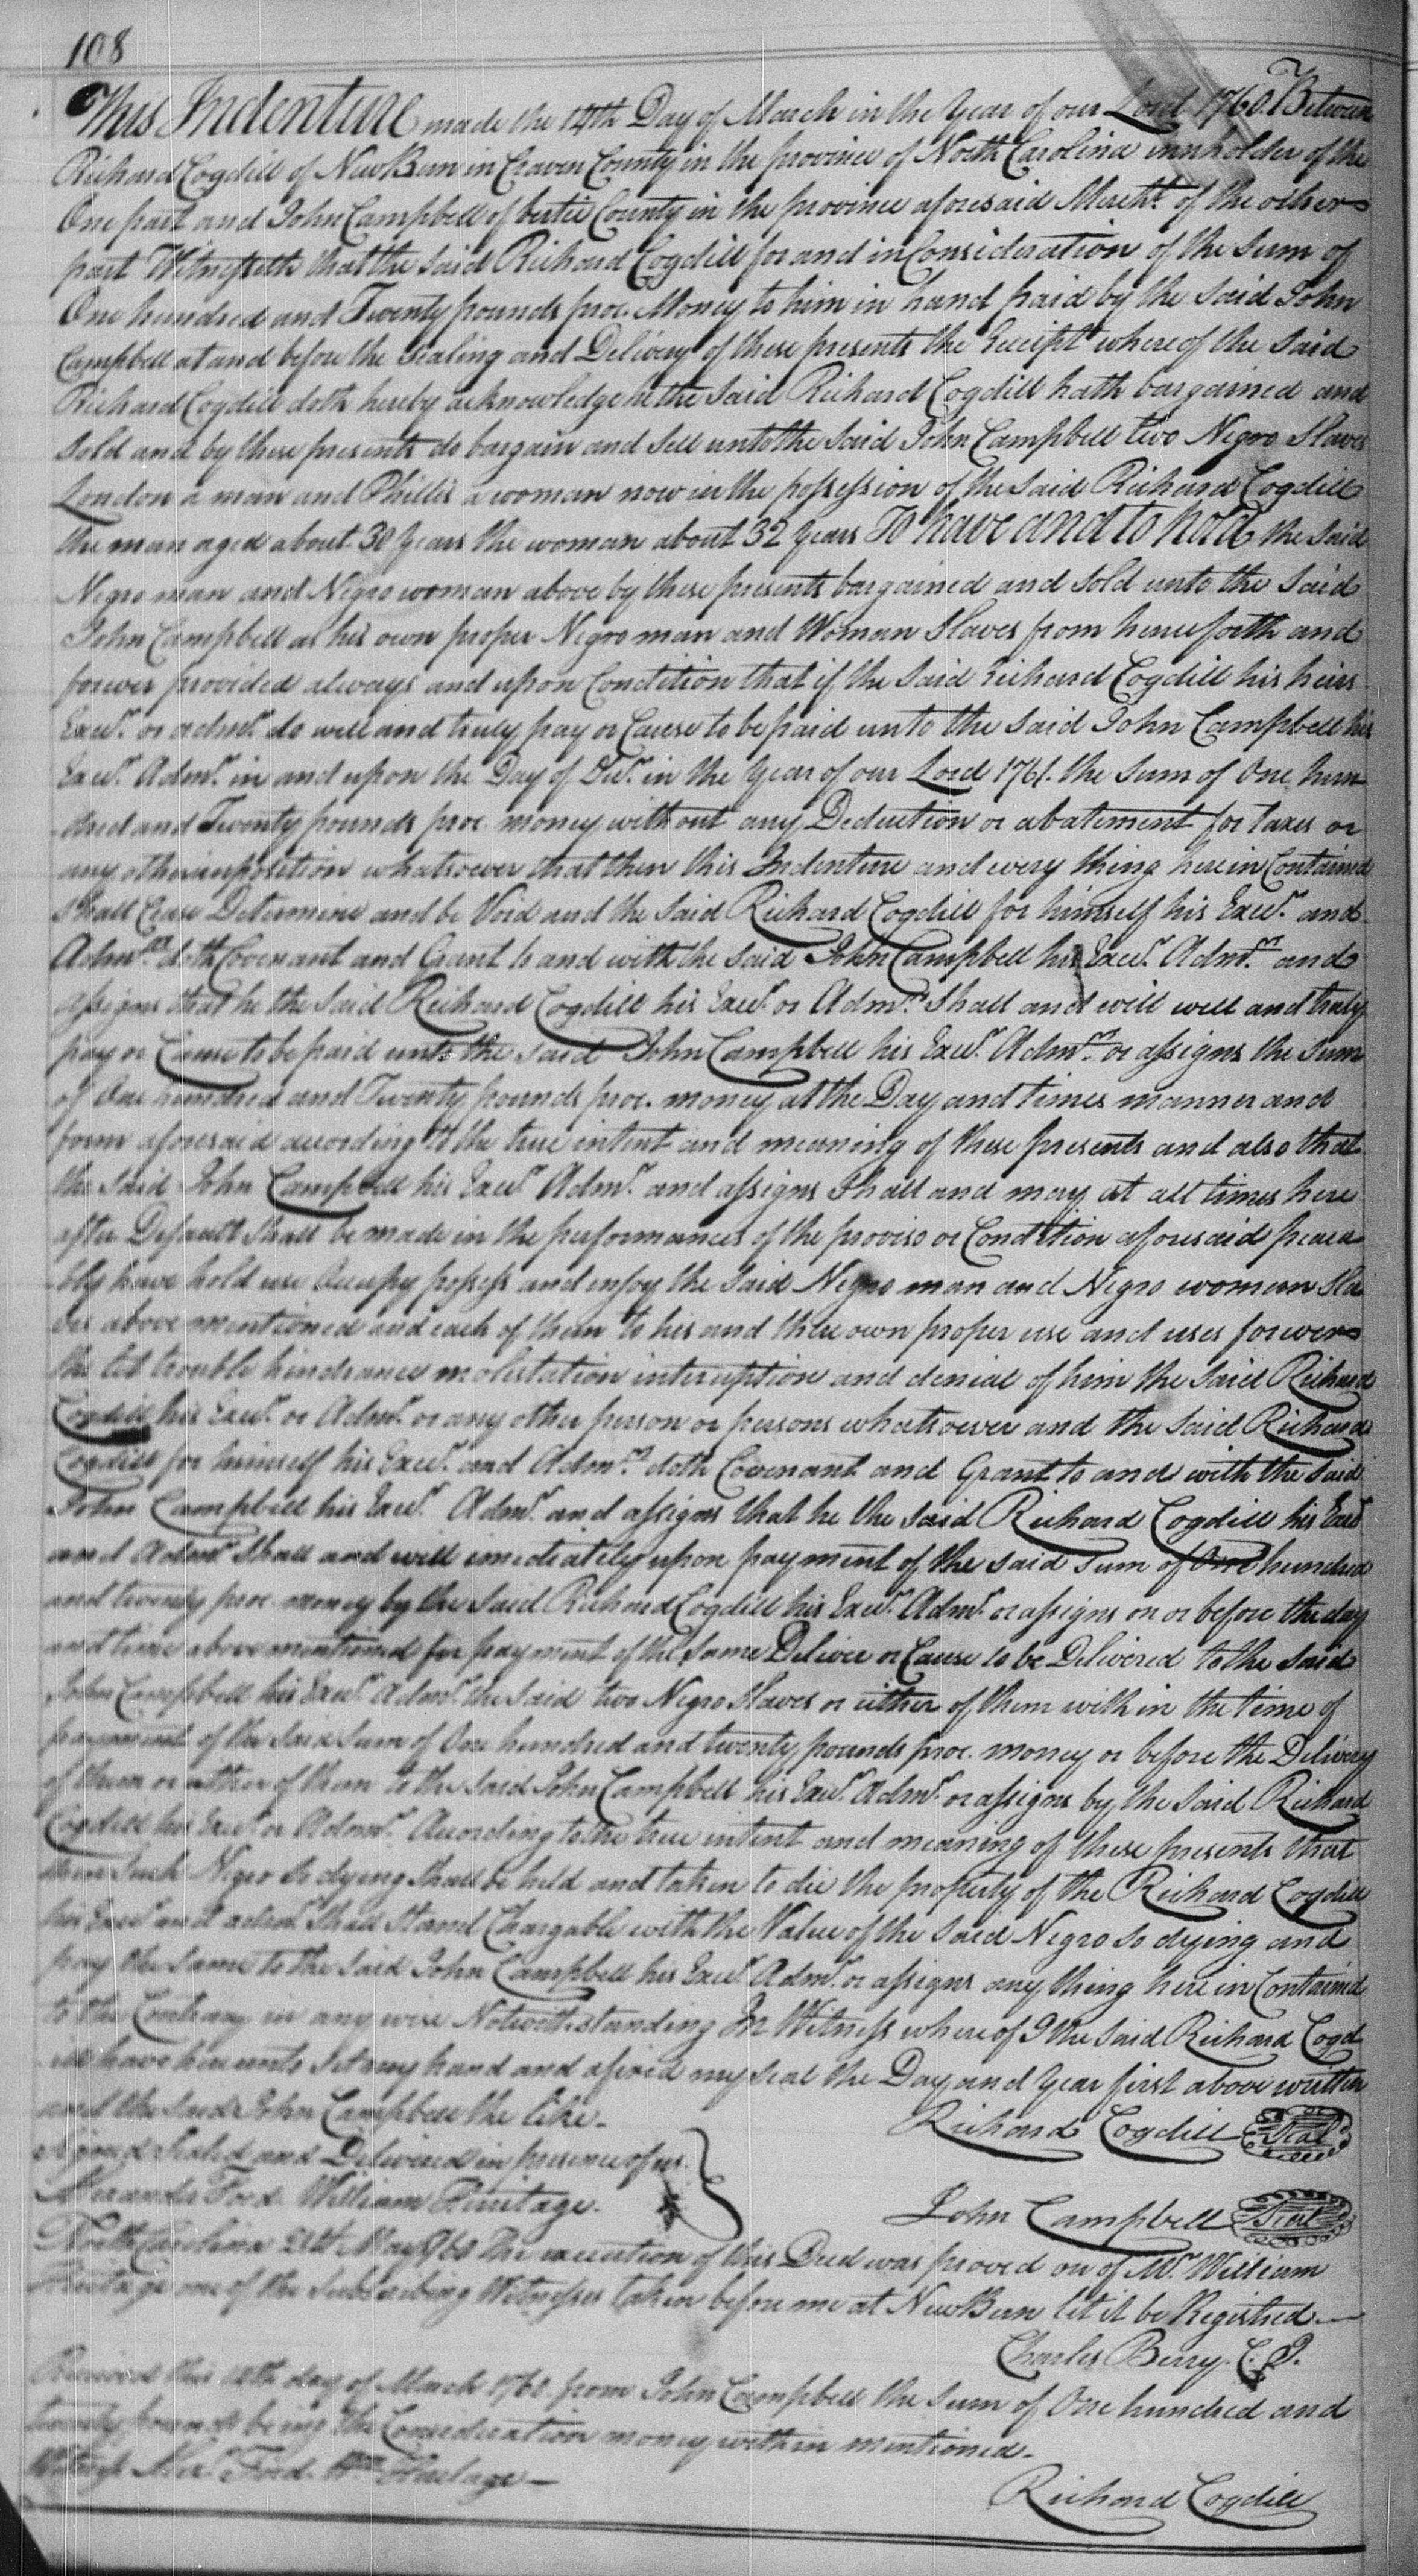 108
This Indenture made the 14th Day of March in the Year of our Lord 1760. Between
Richard Cogdill of NewBern in Craven County in the province of North Carolina innholder of the
One part and John Campbell of bertie County in the province aforesaid Mercht. of the other
part Witnesseth that the said Richard Cogdill for and in Consideration of the Sum of
One hundred and Twenty pounds proc. Money to him in hand paid by the Said John
Campbell at and before the Sealing and Delivery of these presents the Receipt whereof the Said
Richard Cogdill doth hereby acknowledge he the Said Richard Cogdill hath bargained and
Sold and by these presents do bargain and Sell unto the Said John Campbell two Negro Slaves
London a man and Phillis a woman now in the possession of the Said Richard Cogdill
the man aged about 30 Years the woman about 32 Years To have and to hold the Said
Negro man and Negro woman above by these presents bargained and Sold unto the Said
John Campbell as his own proper Negro man and Woman Slaves from henceforth and
forever provided always and upon Condition that if the Said Richard Cogdill his heirs
Exec.rs or adm.rs do well and truly pay or Cause to be paid unto the Said John Campbell his
Exec.rs Adm.rs in and upon the Day of in the Year of our Lord 1761. the Sum of One hun
dred and Twenty pounds proc. money without any Deduction or abatement for taxes or
any other imposition whatsoever that then this Indenture and every thing herein Contained
Shall Cease Determine and be Void and the Said Richard Cogdill for himself his Exec.rs and
Adm.rs doth Covenant and Grant to and with the Said John Campbell his Exec.rs Adm.rs and
assigns that he the Said Richard Cogdill his Exec.rs or Adm.rs Shall and will well and truly
pay or Cause to be paid unto the Said John Campbell his Exec.rs Adm.rs or assigns the Sum
of One hundred and Twenty pounds proc. money at the Day and times manner and
form aforesaid according to the true intent and meaning of these presents and also that
the Said John Campbell his Exec.rs Adm.rs and assigns Shall and may at all times here
after Default Shall be made in the performances of the proviso or Condition aforesaid peacea
bly have hold use Occupy possess and enjoy the Said Negro man and Negro woman Sla
ves above mentioned and each of them to his and there own proper use and uses forever
the let trouble hindrance molestation interuption and denial of him the Said Richard
Cogdill his Exec.rs or Adm.rs or any other person or persons whatsoever and the Said Richard
Cogdill for himself his Exec.rs and Adm.rs doth Covenant and Grant to and with the Said
John Campbell his Exec.rs Adm.rs and assigns that he the Said Richard Cogdill his Exec.rs
and Adm.rs Shall and will imediately upon payment of the Said Sum of One hundred
and twenty proc. money by the Said Richard Cogdill his Exec.rs Adm.rs or assigns on or before the day
and time above mentioned for payment of the Same Deliver or Cause to be Delivered to the Said
John Campbell his Exec.rs Adm.rs the Said two Negro Slaves or either of them within the time of
payment of the Said Sum of One hundred and twenty pounds proc. money or before the Delivery
of them or either of them to the Said John Campbell his Exec.rs Adm.rs or assigns by the Said Richard
Cogdill his Exec.rs or Adm.rs According to the true intent and meaning of these presents that
then Such Negro So dying Shall be held and taken to die the property of the Richard Cogdill
his Exec.rs and adm.rs Shall Stand Chargable with the Value of the Said Negro So dying and
pay the Same to the Said John Campbell his Exec.rs Adm.rs or assigns any thing herein Contained
to the Contrary in any wise Notwithstanding In Witness whereof I the Said Richard Cogd
ill have hereunto Set my hand and afixed my Seal the Day and Year first above written
and the Said John Campbell the like.
Signed Sealed and Delivered in presence of us.
Richard Cogdill Seal
Alexander Ford. William Heritage.
John Campbell Seal
North Carolina 21st May 1760 The execution of this Deed was proved on of Mr. William
Heritage one of the Subscribing Witnesses taken before me at NewBern let it be Registred
Charles Berry. C. J.
Received this 14th day of March 1760 from John Campbell the Sum of One hundred and
twenty pounds being the Consideration money within mentioned.
Witness Alex.r Ford. Wm Heritage
Richard Cogdill